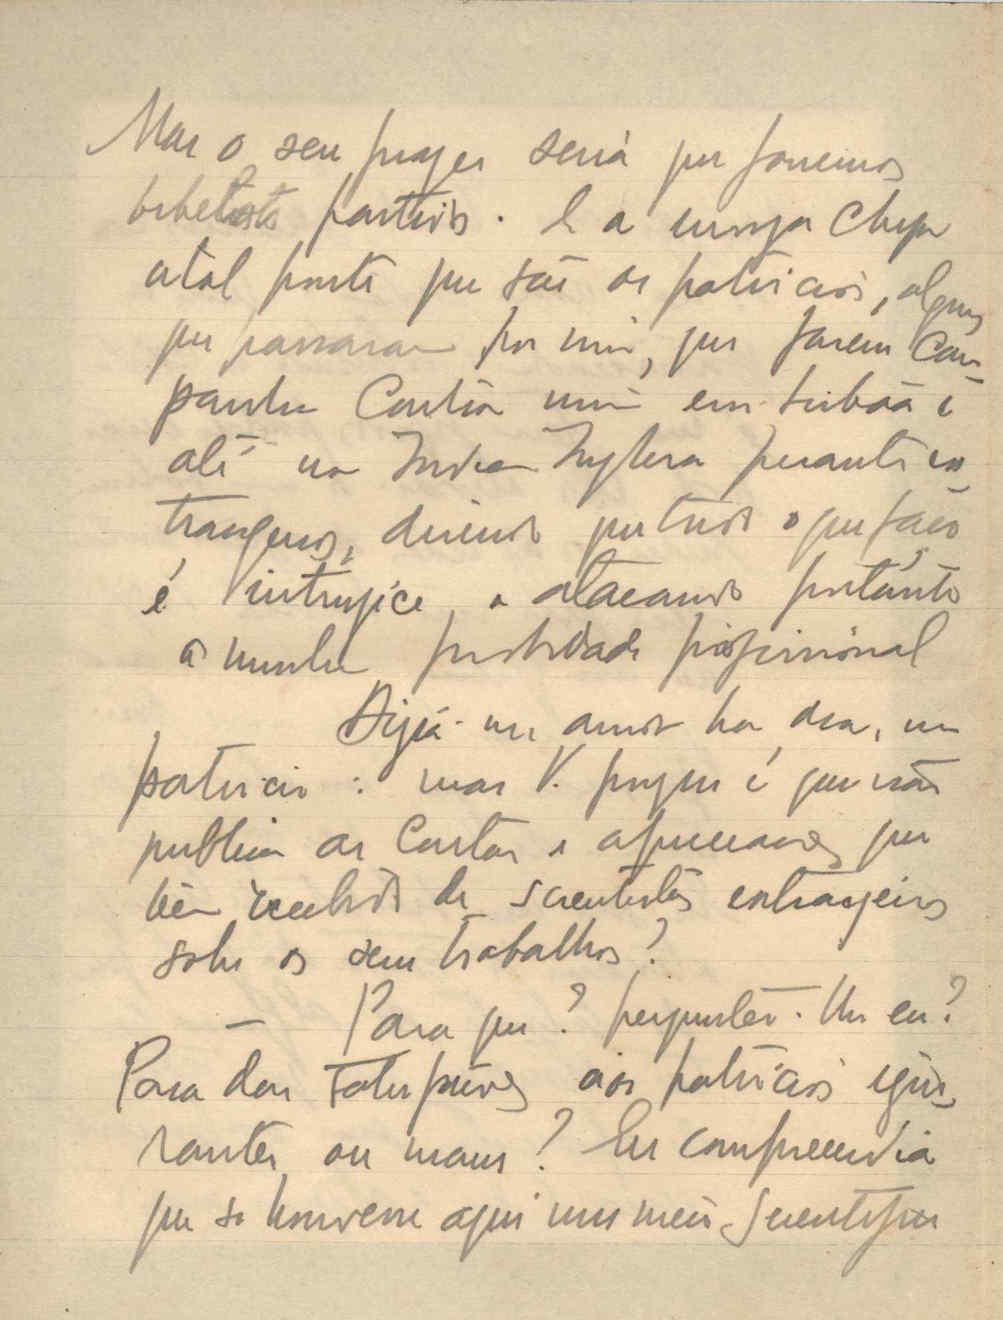 Mas o seu prazer seria que fossemos
portuvis. E a
até ponto que são os patricios, alguns
que passaram por mim, que fazem Cam-
panha Contra mim em Lisboa e
até na India Inglesa perante es-
trangeiros, dizendo que tudo o que faço
é intrujice, e atacando portanto
a minha probidade profissional
Dizia-me ainda ha dias, um
patricio: mas V. porque é que não
publica as Cartas e apreciações que
têm recebido de scientistas estrangeiros
sobre os seus trabalhos?
Para que? perguntei-lhe eu?
Para dar satisfações aos patricios igno-
rantes ou maus? Eu comprehendia
que se houvesse aqui um meio scientifico